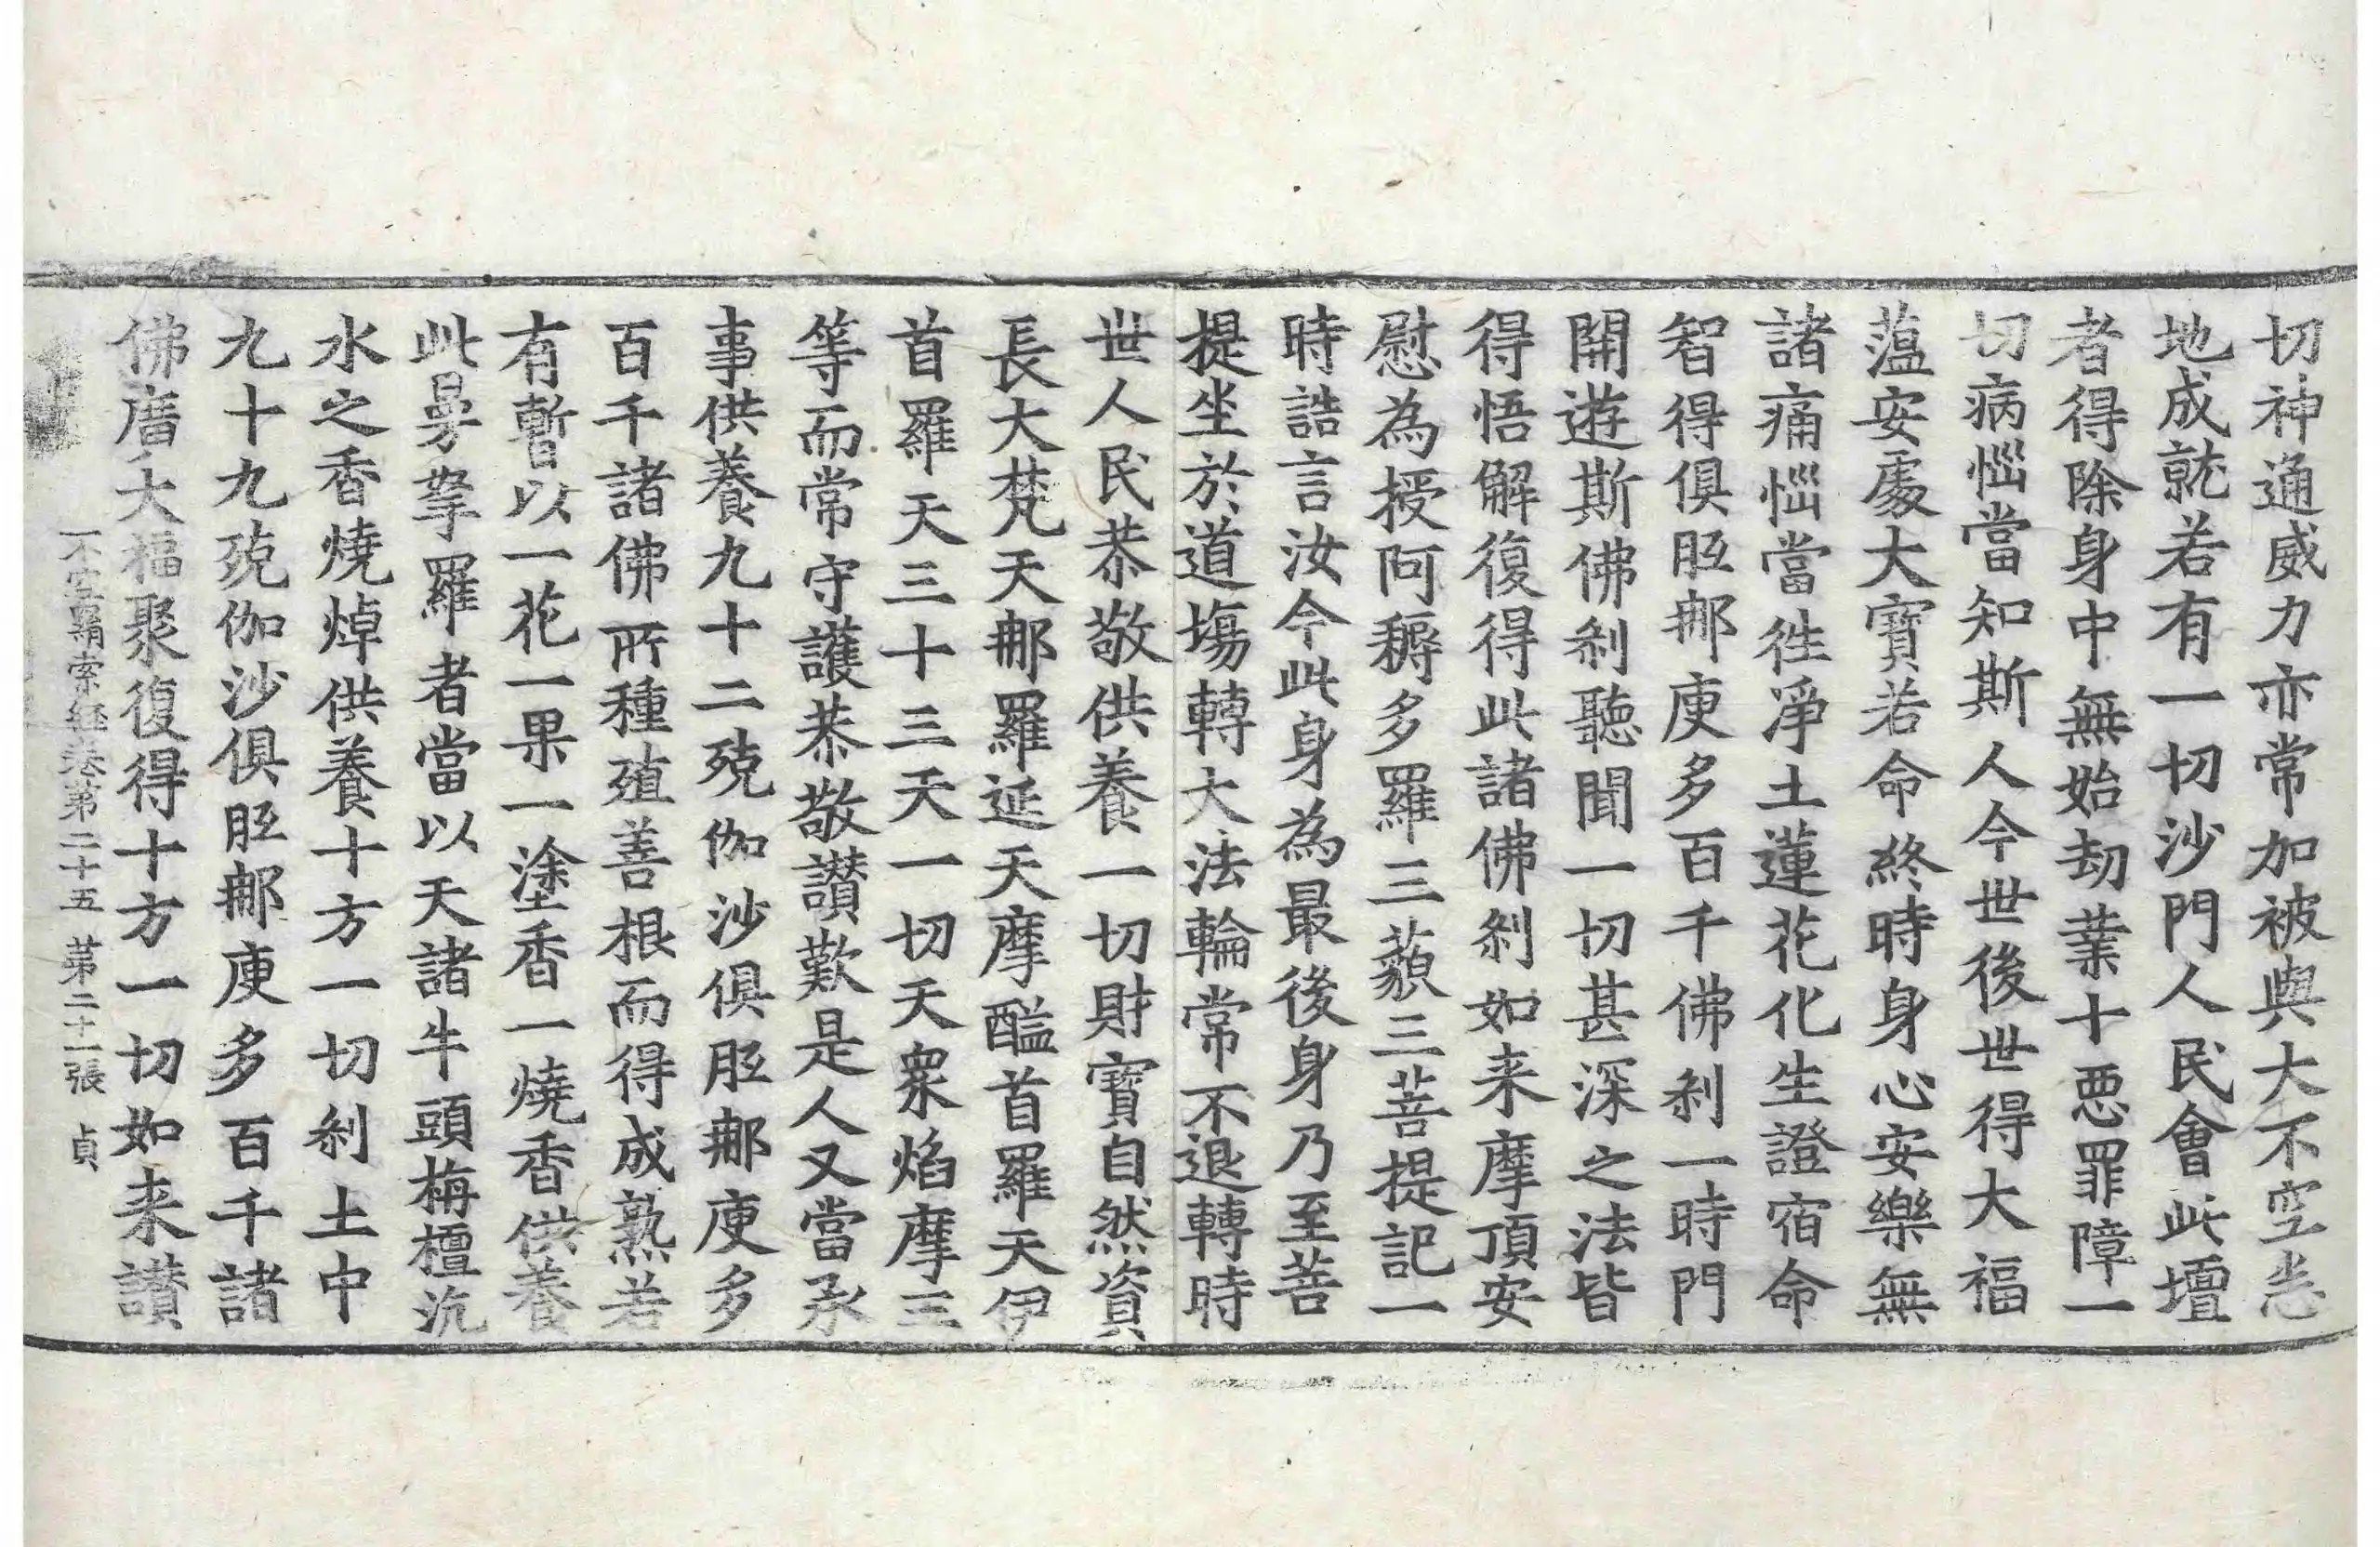 切神通威力亦常加被與大不空悉
地成就若有一切沙門人民會此壇
者得除身中無始劫業十惡罪障一
切病惱當知斯人今世後世得大福
蘊安處大寶若命終時身心安樂無
諸痛惱當往淨土蓮花化生證宿命
智得俱胝那庾多百千佛刹一時門
開遊斯佛刹聽聞一切甚深之法皆
得悟解復得此諸佛刹如来摩頂安
慰為授阿耨多羅三藐三菩提記一
時誥言汝今此身為最後身乃至菩
提坐於道場轉大法輪常不退轉時
世人民恭敬供養一切財寶自然資
長大梵天那羅延天摩醯首羅天伊
首羅天三十三天一切天衆焰摩三
等而常守護恭敬讃歎是人又當承
事供養九十二殑伽沙俱胝那庾多
百千諸佛所種殖善根而得成熟若
有暫以一花一果一塗香一燒香供養
此曼拏羅者當以天諸牛頭栴檀沉
水之香燒焯供養十方一切刹土中
九十九殑伽沙俱胝那庾多百千諸
佛廣大福聚復得十方一切如来讃
不空羂索經卷第二十五 第二十一張 貞